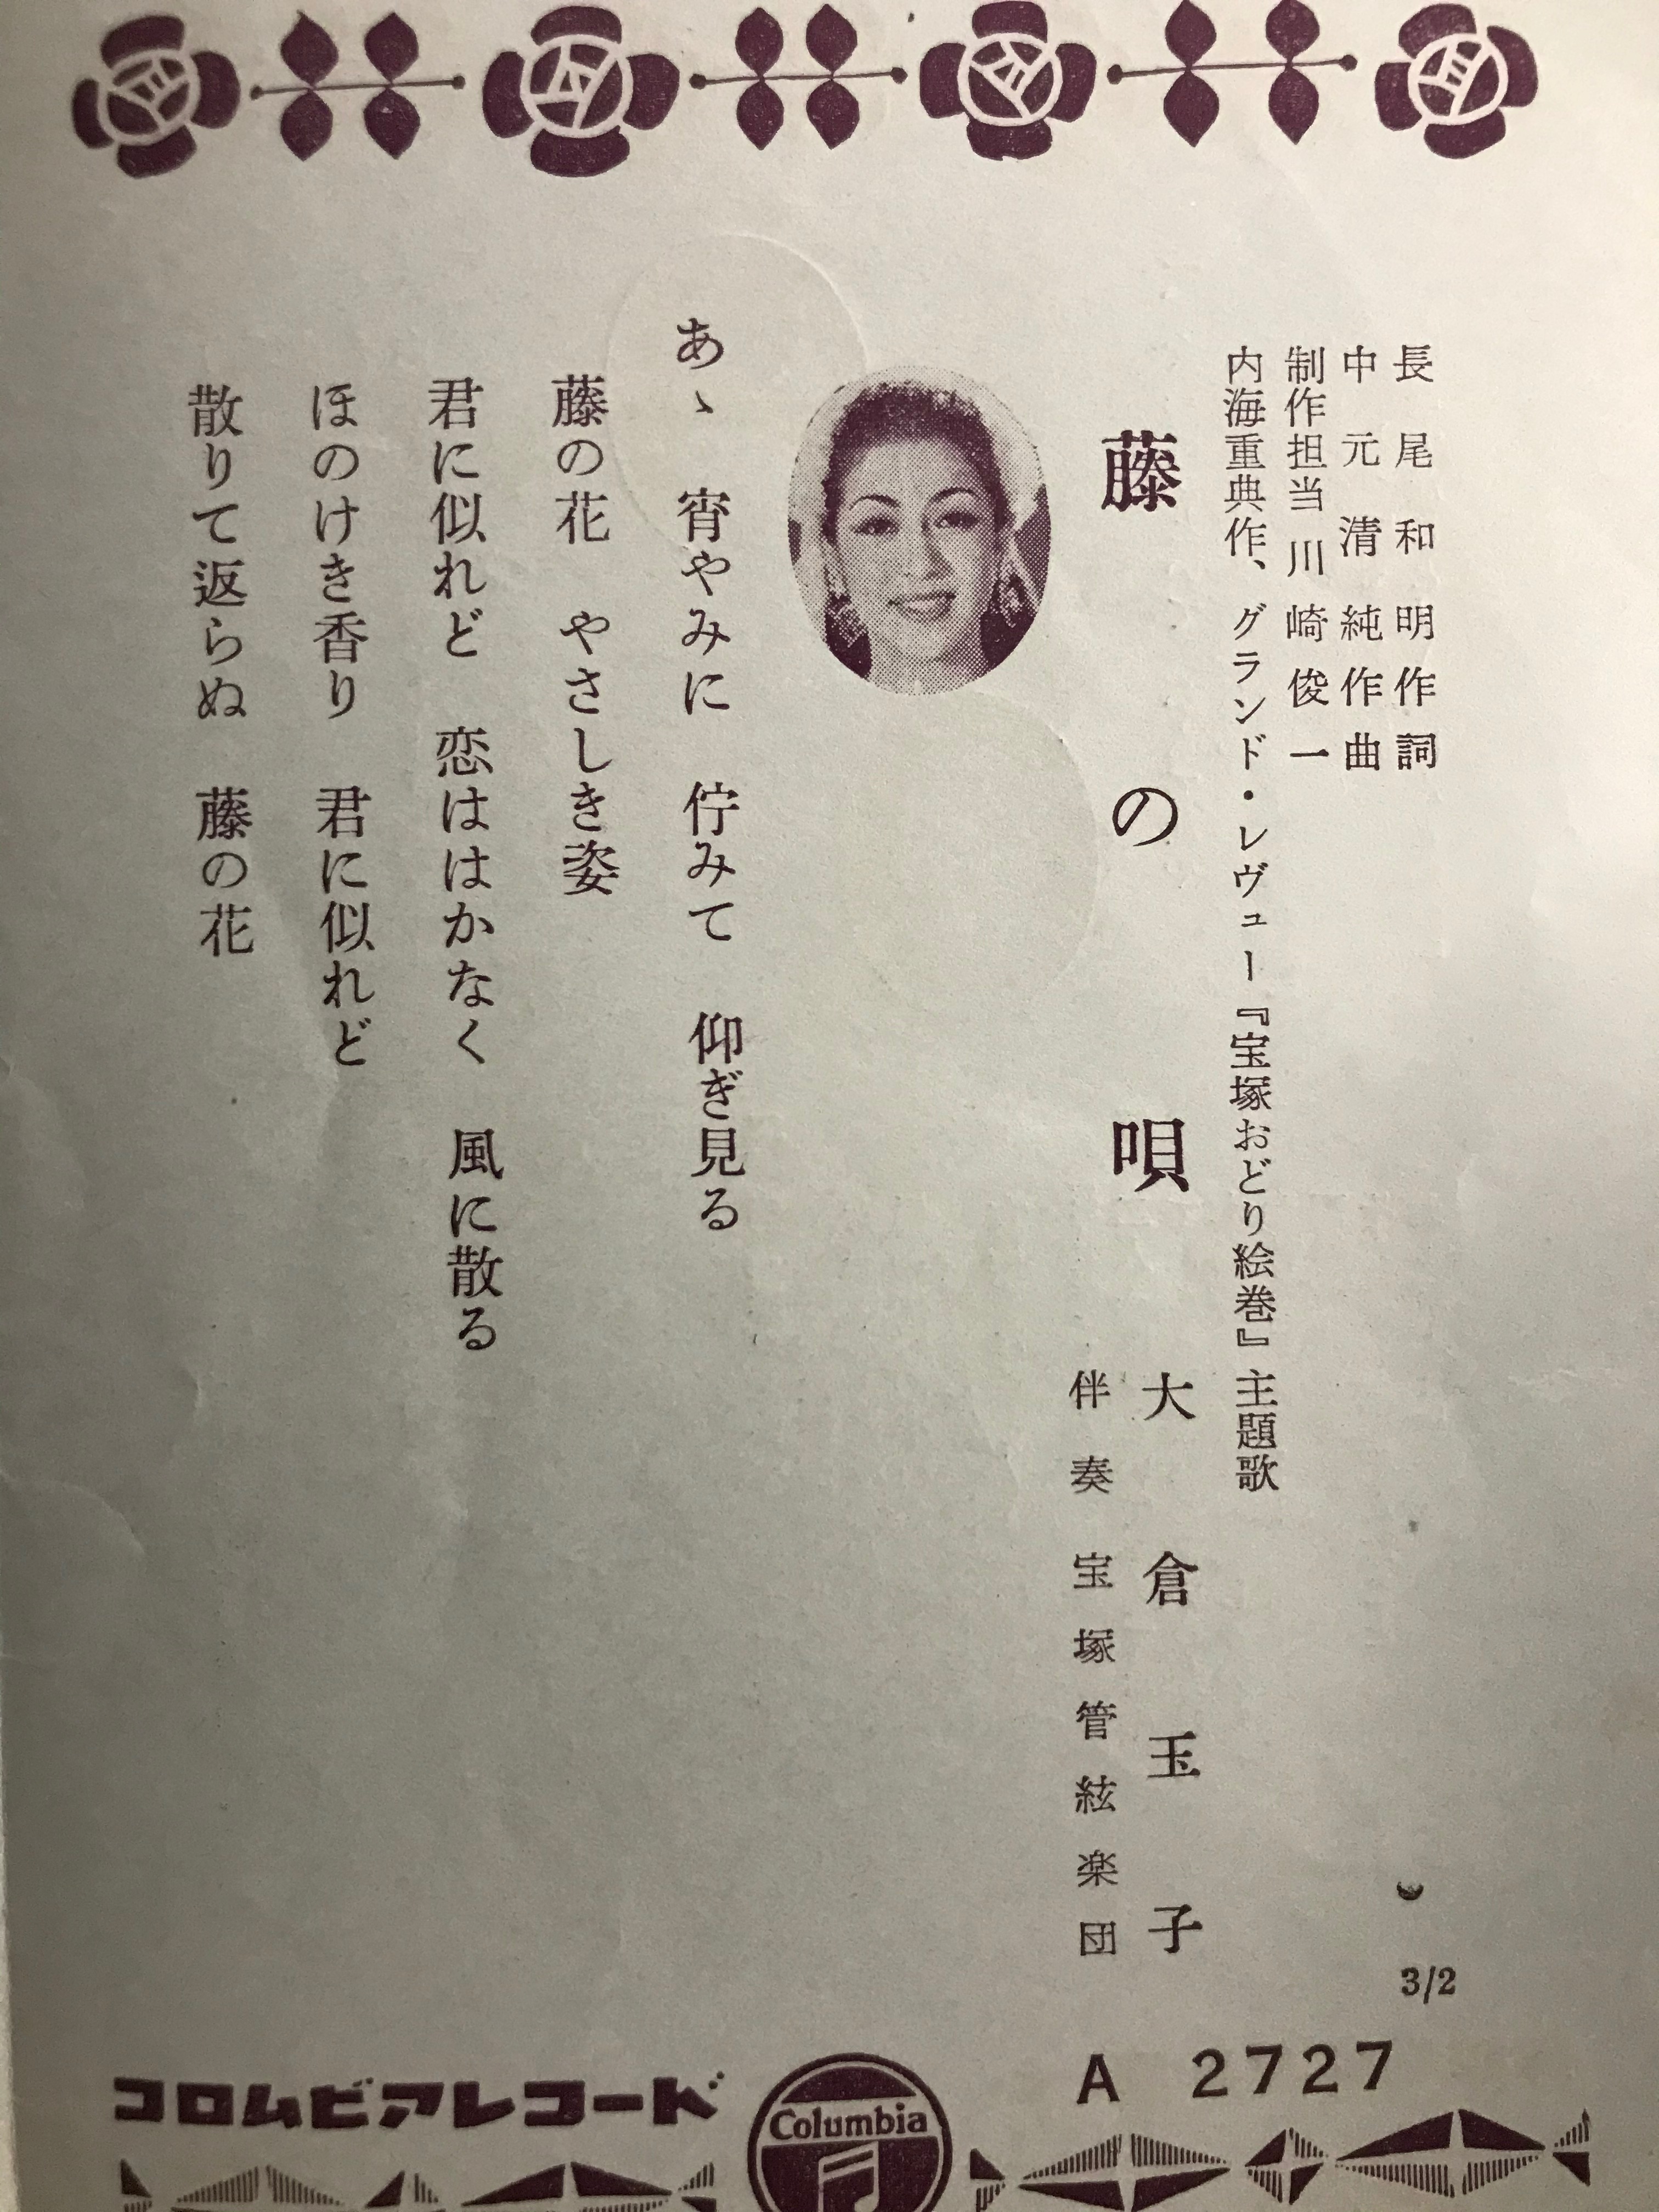 長尾和明作詞
中元清純作曲
制作担当 川崎俊一
内海重典作、グランド・レヴュー『宝塚おどり絵巻』主題歌
藤の唄
大倉玉子
伴奏 宝塚管絃楽団
あゝ 宵やみに 佇みて 仰ぎ見る
藤の花 やさしき姿
君に似れど 恋ははかなく 風に散る
ほのけき香り 君に似れど
散りて返らぬ 藤の花
3/2
A 2727
コロムビアレコード
Columbia